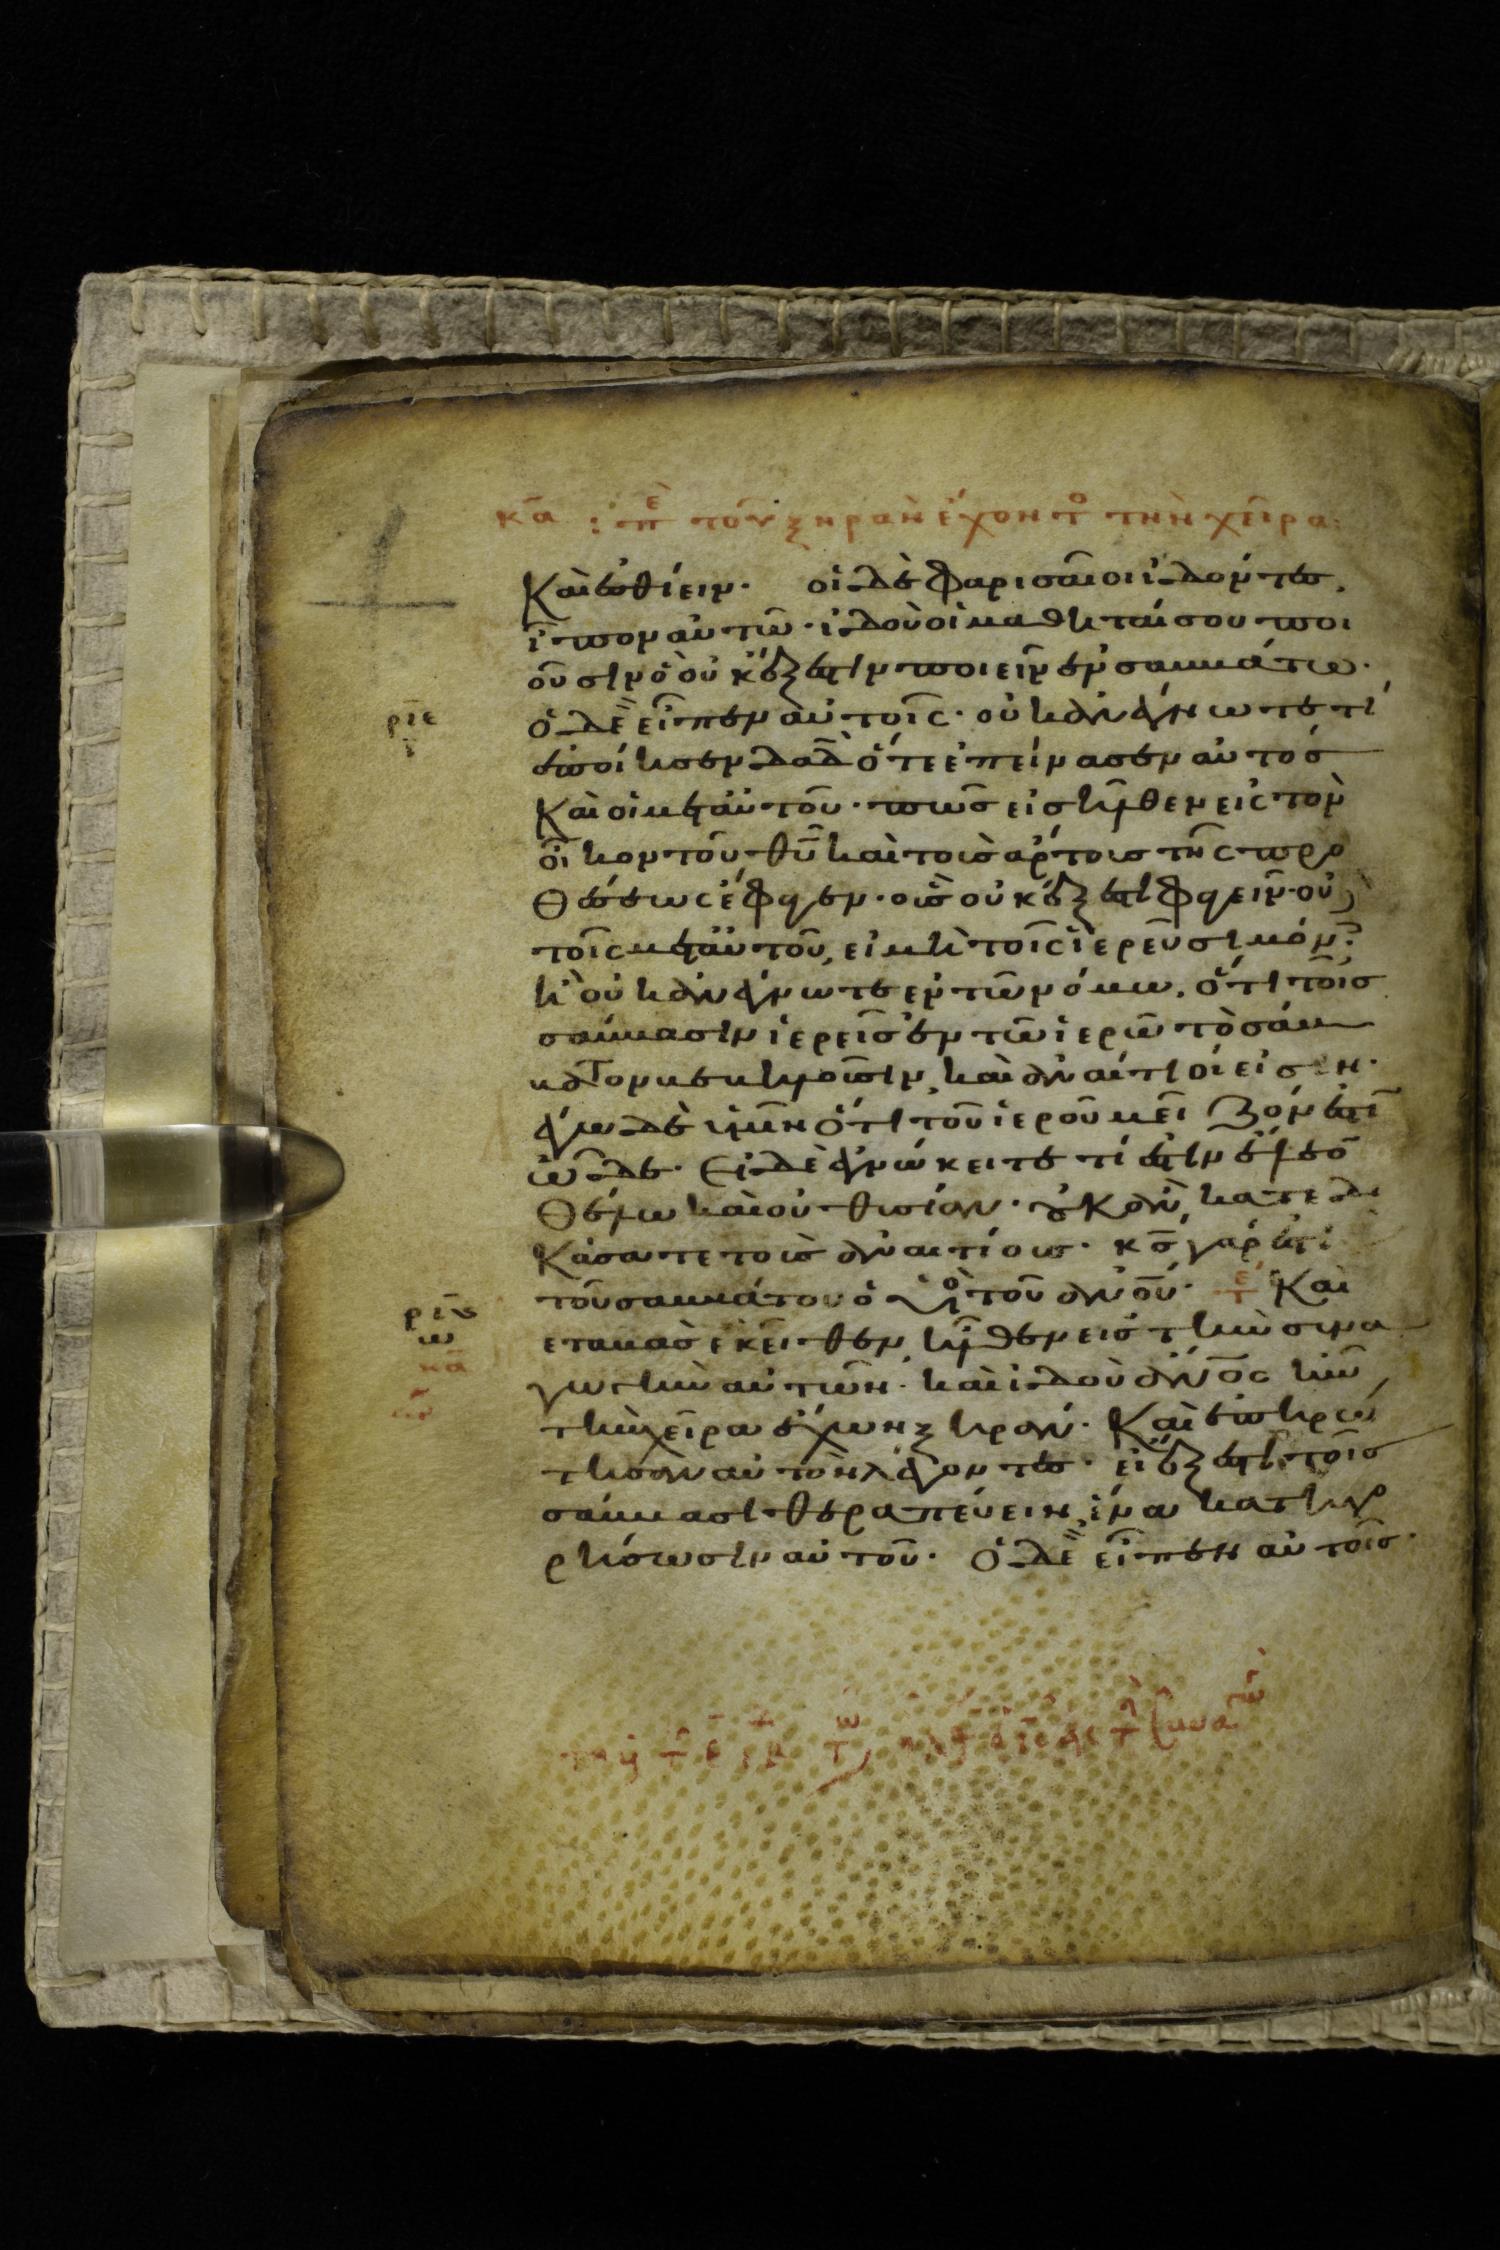 κα : πε τοῦ ξηρὰν ἔχοντο τὴν χεῖρα:
Καὶ ἐσθίειν· οἱ δὲ φαρισαῖοι ἰδόντες,
εἶπον αὐτῶ· ἰδοὺ οἱ μαθηταί σου ποι
οῦσιν ὃ οὐκ ἔξεστιν ποιεῖν ἐν σαββάτω·
ρις
ὁ δὲ εἶπεν αὐτοῖς· οὐκ ἀνέγνωτε τί
ἐποίησεν δαδ ὅτε ἐπείνασεν αὐτὸς
Καὶ οἱ μετ αὐτοῦ· πῶς εἰσῆλθεν εἰς τὸν
οἶκον τοῦ θυ καὶ τοὺς ἄρτους τῆς προ
θέσεως ἔφαγεν· οὓς οὐκ ἔξεστι φαγεῖν· οὐ
τοῖς μετ αὐτοῦ, εἰ μὴ τοῖς ἱερεῦσι μόν·
ἢ οὐκ ἀνέγνωτε ἐν τῶ νόμω, ὅτι τοῖς
σάββασιν ἱερεῖς ἐν τῶ ἱερῶ τὸ σάβ
βατον βεβηλοῦσιν, καὶ ἀναίτιοί εἰσιν·
λέγω δὲ ὑμῖν ὅτι τοῦ ἱεροῦ μεῖζόν ἐστι
ὧδε· Εἰ δὲ ἐγνώκειτε τί ἐστιν ἔλεον
Θέλω καὶ οὐ θυσίαν· οὐκ ἂν κατεδι
Κάσατε τοὺς ἀναιτίους· κς γάρ ἐστι
τοῦ σαββάτου ὁ υἱὸς τοῦ ανου· τε Καὶ
ρις
κα
μεταβὰς ἐκεῖθεν, ἦλθεν εἰς τὴν συνα
γωγὴν αὐτῶν· καὶ ἰδοὺ ανος ἦν
τὴν χεῖρα ἔχων ξηράν· Καὶ ἐπηρώ
τησαν αὐτὸν λέγοντες· εἰ ἔξεστι τοῖς
σάββασι θεραπεύειν, ἵνα κατηγο
ρήσωσιν αὐτοῦ· ὁ δὲ εἶπεν αὐτοῖς·